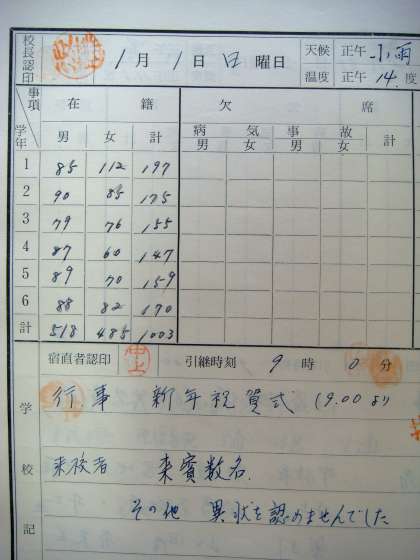 校長認印 1月1日 日曜日 天候 正午 小雨
温度 正午 14.度
事項 在籍 欠席
学年 男 女 計 病気 男 女 事故 男 女 計
1 85 112 197
2 90 85 175
3 79 76 155
4 87 60 147
5 89 70 159
6 88 82 170
計 518 485 1003
宿直者認印 井上 引継時刻 9時0分
行事 新年祝賀式 (9.00より
来校者 来賓数名.
その他 異状を認めませんでした
学校記